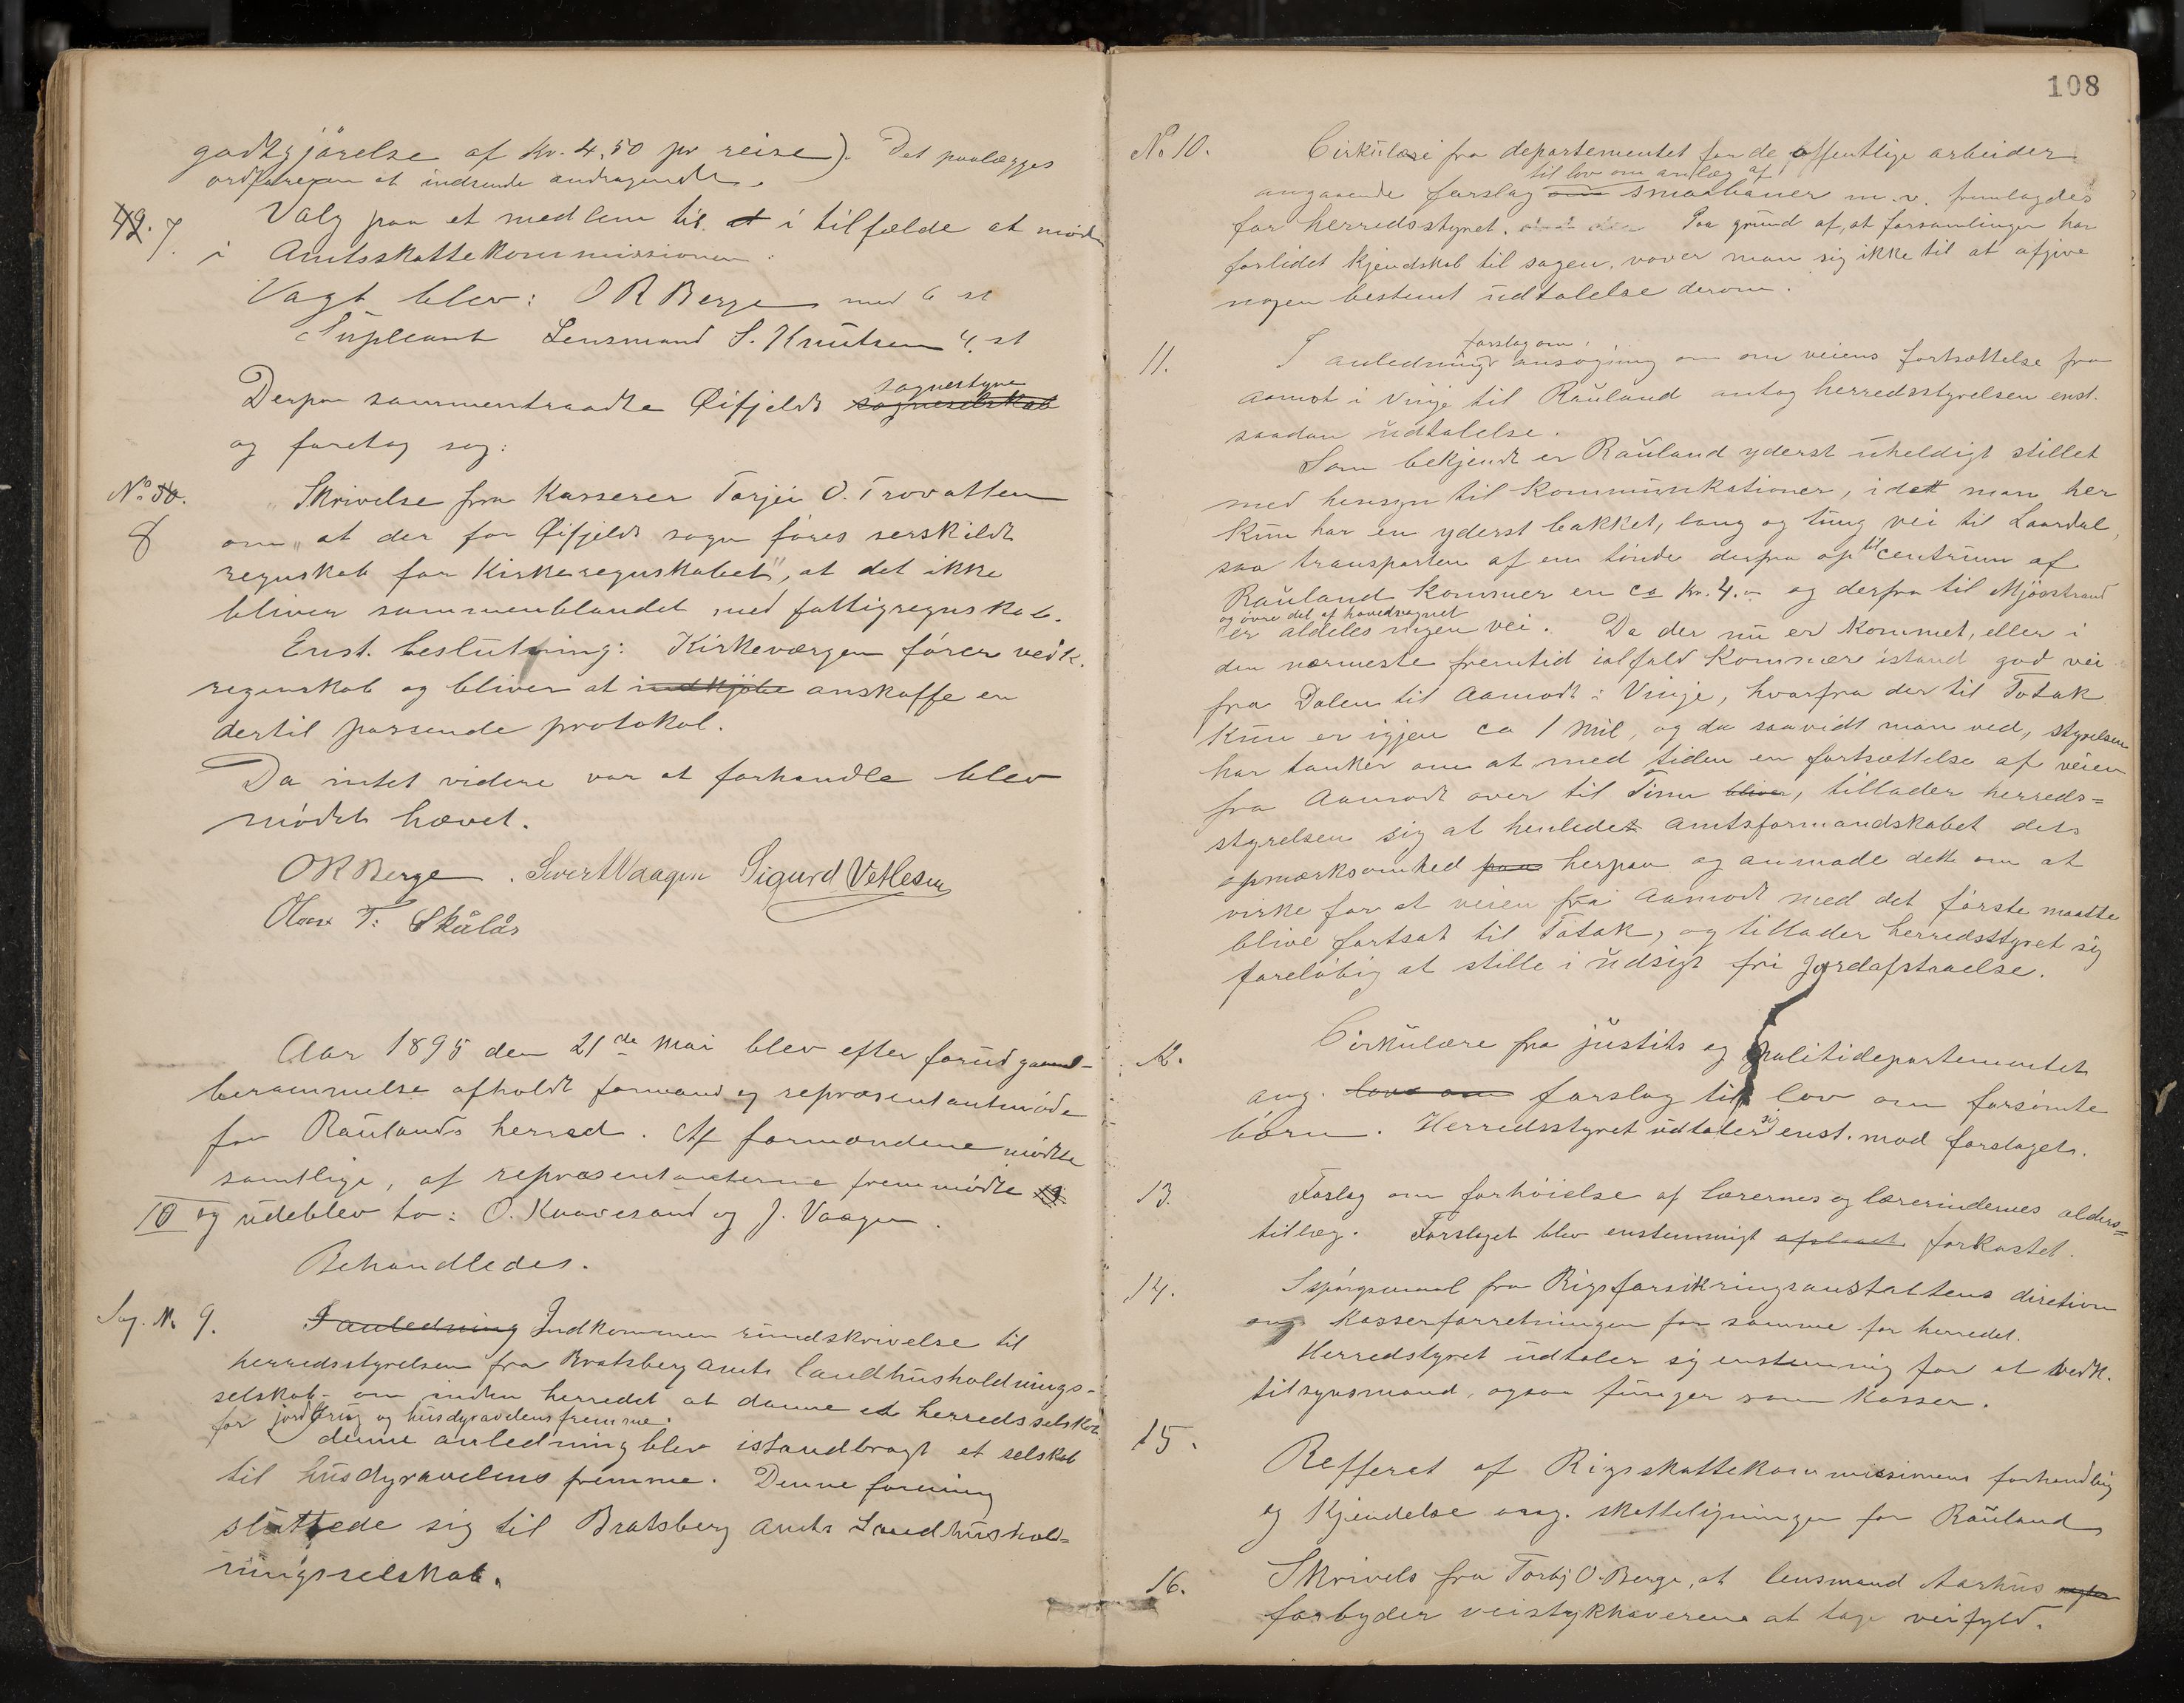 godtgjørelse af kr. 4,50 pr reise). Det paalægges
ordføreren at indsende andragendet.
49. 7. Valg paa et medlem til at i tilfælde at møde
i Amtsskattekommissionen:
Vagt blev: O R Berge med 6 st
Supleant Lensmand S. Knutsen 4 st
Derpaa sammentraadte Øifjelds sogneselskab sognestyre
og foretog sag:
No 50. 8 Skrivelse fra Kasserer Torjei O. Trovatten
om „at der for Øifjelds sogn føres serskildt
regnskab for Kirkeregnskabet", at det ikke
bliver sammenblandet med fattigregnskab.
Enst. beslutning: Kirkeværgen fører vedk.
regnskab og bliver at indkjøbe anskaffe en
dertil passende protokol.
Da intet videre var at forhandle blev
mødet hævet.
O R Berge . Sivert Vaagen Sigurd Vetlesen
Olav T. Skålås
Aar 1895 den 21de Mai blev efter forudgaaend-
berammelse afholdt formand og repræsentantmøde
for Raulands herred. Af formændene mødte
samtlige, af repræsentanterne fremmødte
10 og udeblev to: O. Kvavesand og J. Vaagen.
Behandledes.
Sag. No 9. I anledning Indkommen rundskrivelse til
herredsstyrelsen fra Bratsberg amts landhusholdnings-
selskab- om inden herredet at danne et herredsselskab
for jordbrug og husdyravlens fremme.
denne anledning blev istandbragt et selskab
til husdyravlens fremme. Denne forening
sluttede sig til Bratsberg amts Landhushold=
ningsselskab.
108
No 10. Cirkulære fra departementet for de offentlige arbeider
angaaende forslag om til lov om anlæg af smaabaner m.v. fremlagdes
for herredsstyret. Paa grund af, at forsamlingen har
forlidet kjendskab til sagen, vover man sig ikke til at afgive
nogen bestemt udtalelse derom.
11. I anledning forslag om ansøgning om om veiens fortsættelse fra
Aamot i Vinje til Rauland antog herredsstyrelsen enst.
saadan udtalelse.
Som bekjendt er Rauland yderst uheldigt stillet
med hensyn til Kommunikationer, idett man her
kun har en yderst bakket, lang og tung vei til Laardal,
saa transporten af en tønde derfra op til centrum af
Rauland kommer en ca kr. 4.- og derfra til Mjøsstrand
og øvre del af hovedsognet
er aldeles ingen vei. Da der nu er kommet, eller i
den nærmeste fremtid ialfald kommer istand god vei
fra Dalen til Aamodt i Vinje, hvorfra der til Totak
kun er igjen ca 1 mil, og da saavidt man ved, styrelsen
har tanker om at med tiden en fortsættelse af veien
fra Aamodt over til Tinn bliver, tillader herreds=
styrelsen sig at henledet Amtsformandskabet dets
opmærksomhed paa herpaa og anmode dette om at
virke for at veien fra Aamodt med det første maatte
blive fortsat til Totak, og tillader herredsstyret sig
foreløbig at stille i udsigt fri jordafstaaelse.
12. Cirkulære fra justits og politidepartementet
ang. lov om forslag till lov om forsømte
børn. Herredsstyret udtaler sig enst. mod forslaget.
13. Forslag om forhøielse af lærernes og lærerindernes alders=
tillæg. Forslaget blev enstemmigt afslaaet forkastet.
14. Spørgsmaal fra Rigsforsikringsanstaltens diretion
ang. Kasserforretningen for samme for herredet.
Herredstyret udtaler sig enstemmig for at vedk.
tilsynsmand, ogsaa funger som kasser.
15. Refferat af Rigsskattekommissionens forhandling
og Kjendelse ang. skatteligningen for Rauland
16. Skrivels fra Torbj O. Berge, at lensmand Aarhus
forbyder veistykhaverene at tage veifyld.